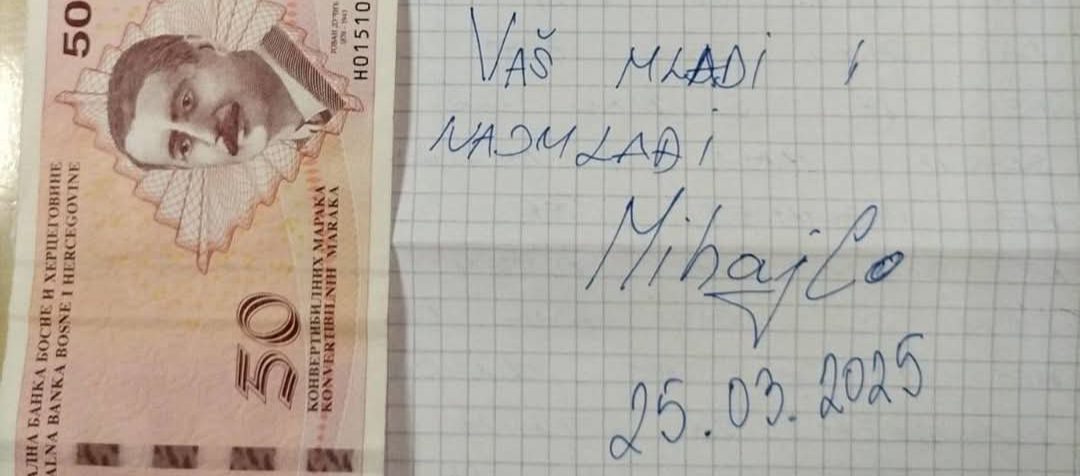 50
ЈОВАН ДУЧИЋ
H01510
АЛНА БАНКА БОСНЕ И ХЕРЦЕГОВИНЕ
ALNA BANKA BOSNE I HERCEGOVINE
50
КОНВЕРТИБИЛНИХ МАРАКА
KONVERTIBILNIH MARAKA
VAŠ MLADI I
NAJMLAĐI
Mihajlo
25.03.2025